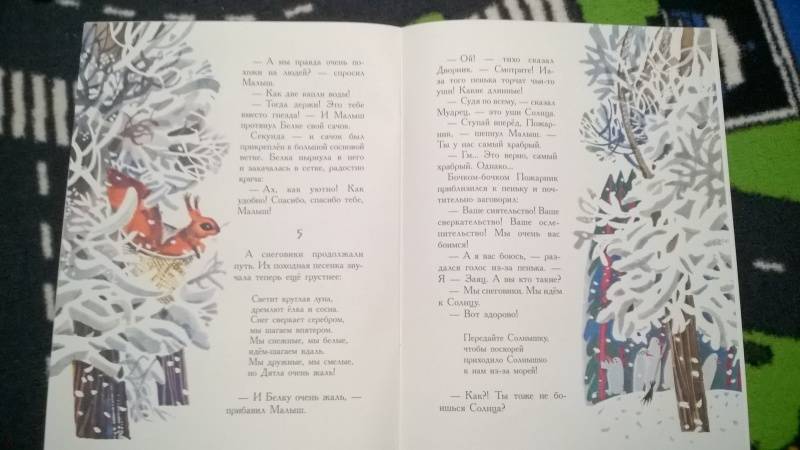 — А мы правда очень по-
хожи на людей? — спросил
Малыш.
— Как две капли воды!
— Тогда держи! Это тебе
вместо гнезда! — И Малыш
протянул Белке свой сачок.
Секунда — и сачок был
прикреплён к большой сосновой
ветке. Белка нырнула в него
и закачалась в сетке, радостно
крича:
— Ах, как уютно! Как
удобно! Спасибо, спасибо тебе,
Малыш!
5
А снеговики продолжали
путь. Их походная песенка зву-
чала теперь ещё грустнее:
Светит круглая луна,
дремлют ёлка и сосна.
Снег сверкает серебром,
мы шагаем впятером.
Мы снежные, мы белые,
идём-шагаем вдаль.
Мы дружные, мы смелые,
но Дятла очень жаль!
— И Белку очень жаль, —
прибавил Малыш.
— Ой! — тихо сказал
Дворник. — Смотрите! Из-
за того пенька торчат чьи-то
уши! Какие длинные!
— Судя по всему, — сказал
Мудрец, — это уши Солнца.
— Ступай вперёд, Пожар-
ник, — шепнул Малыш. —
Ты у нас самый храбрый.
— Гм... Это верно, самый
храбрый. Однако...
Бочком-бочком Пожарник
приблизился к пеньку и поч-
тительно заговорил:
— Ваше сиятельство! Ваше
сверкательство! Ваше осле-
пительство! Мы очень вас
боимся!
— А я вас боюсь, — раз-
дался голос из-за пенька. —
Я — Заяц. А вы кто такие?
— Мы снеговики. Мы идём
к Солнцу.
— Вот здорово!
Передайте Солнышку,
чтобы поскорей
приходило Солнышко
к нам из-за морей!
— Как?! Ты тоже не бо-
ишься Солнца?